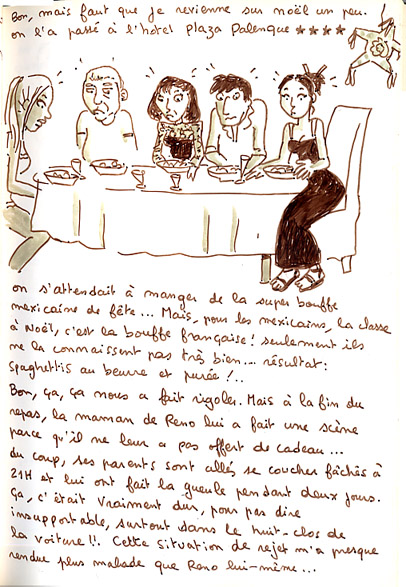 Bon, mais faut que je revienne sur noël un peu.
on l'a passé à l'hotel Plaza Palenque ★★★★
on s'attendait à manger de la super bouffe
mexicaine de fête... Mais, pour les mexicains, la classe
à Noël, c'est la bouffe française! seulement ils
ne la connaissent pas très bien... résultat:
Spaghettis au beurre et purée!..
Bon, ça, ça nous a fait rigoler. Mais à la fin du
repas, la maman de Reno lui a fait une scène
parce qu'il ne leur a pas offert de cadeau...
du coup, ses parents sont allés se coucher fâchés à
21H et lui ont fait la gueule pendant deux jours.
ça, c'était vraiment dur, pour pas dire
insupportable, surtout dans le huit-clos de
la voiture!!. Cette situation de rejet m'a presque
rendue plus malade que Reno lui-même...